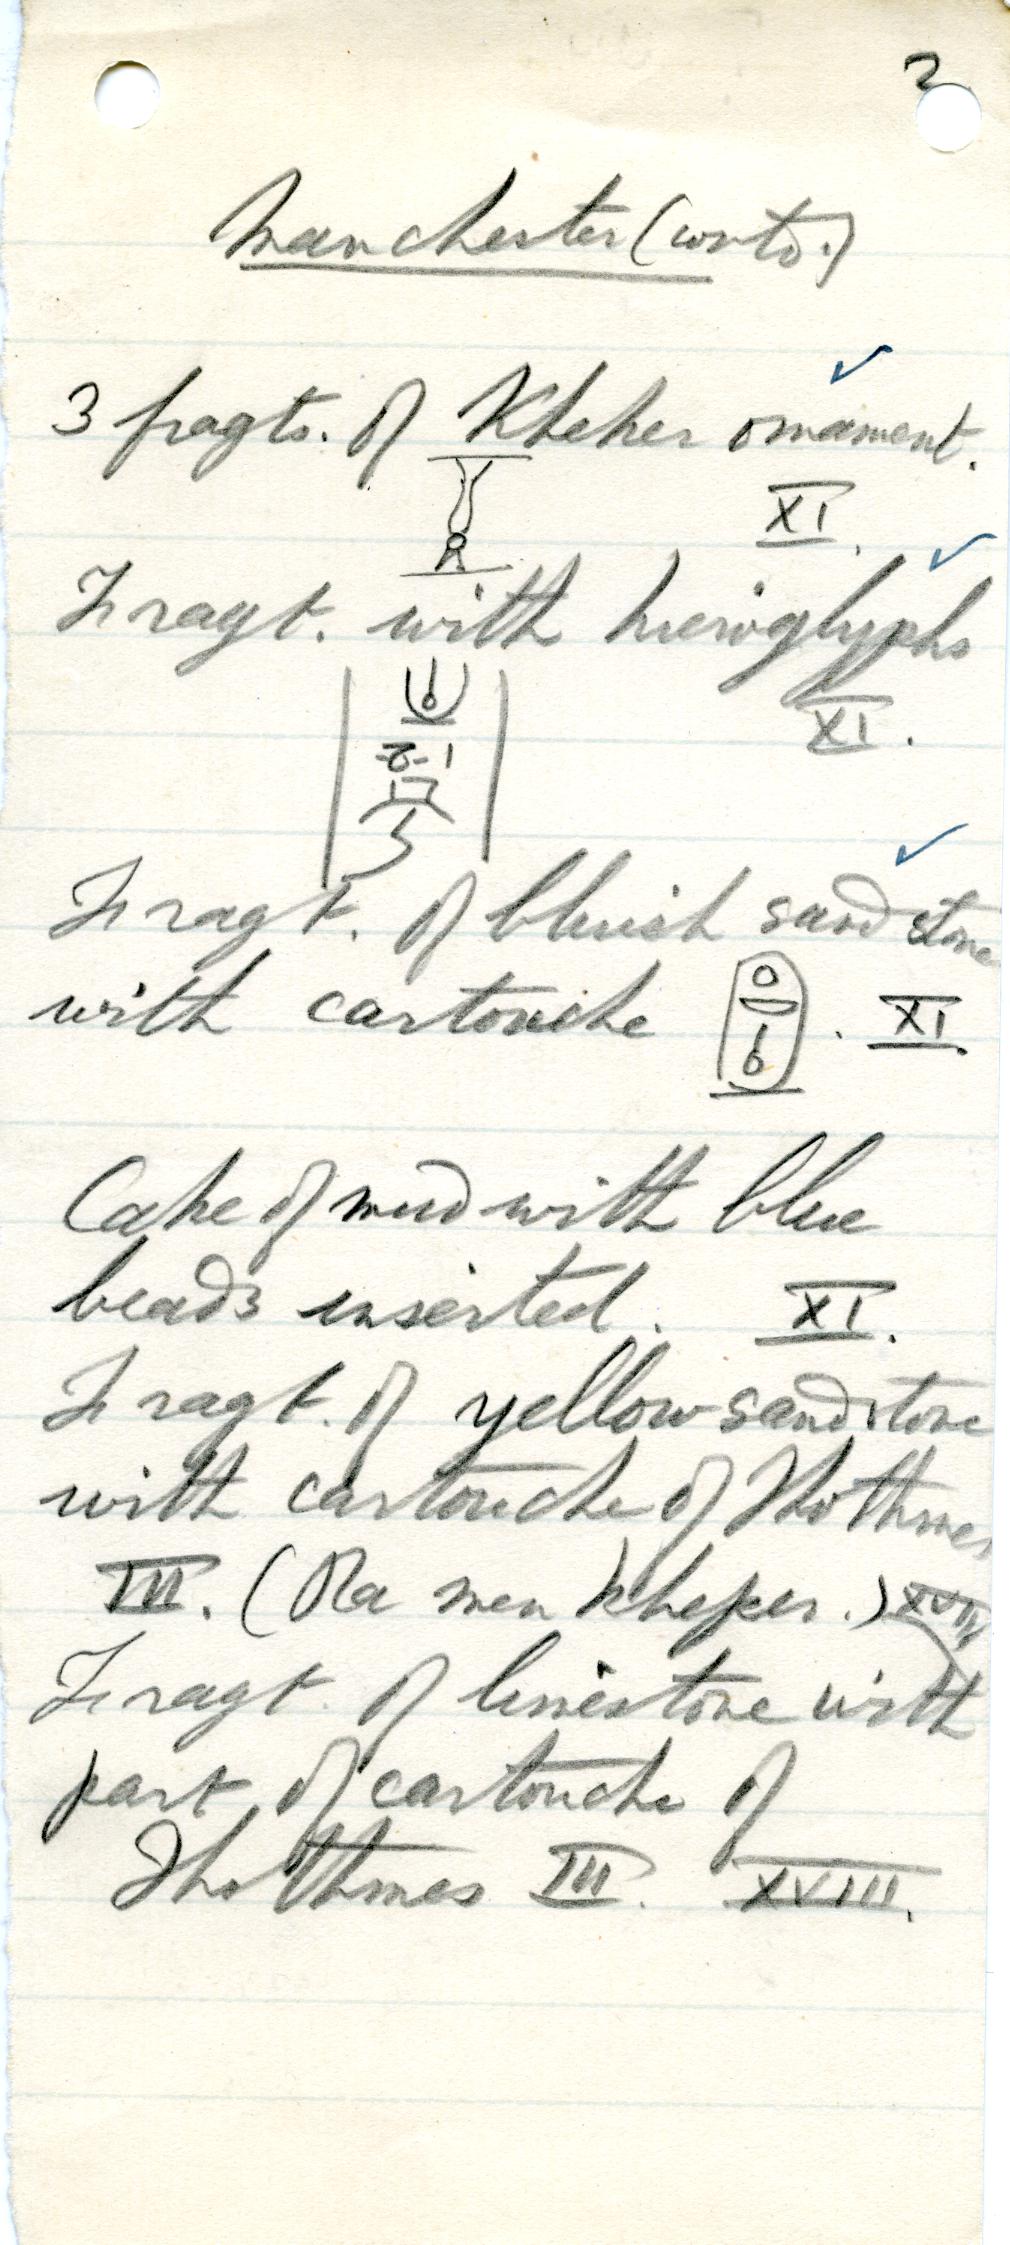 2
Manchester (contd.)
3 fragts. of Kheker ornament.
XI.
Fragt. with hieroglyphs
XI.
Fragt. of bluish sandstone
with cartouche . XI.
Cake of mud with blue
beads inserted. XI.
Fragt. of yellow sandstone
with cartouche of Thothmes
III. (Ra men kheper.) XVIII
Fragt. of limestone with
part of cartouche of
Thothmes III. XVIII.